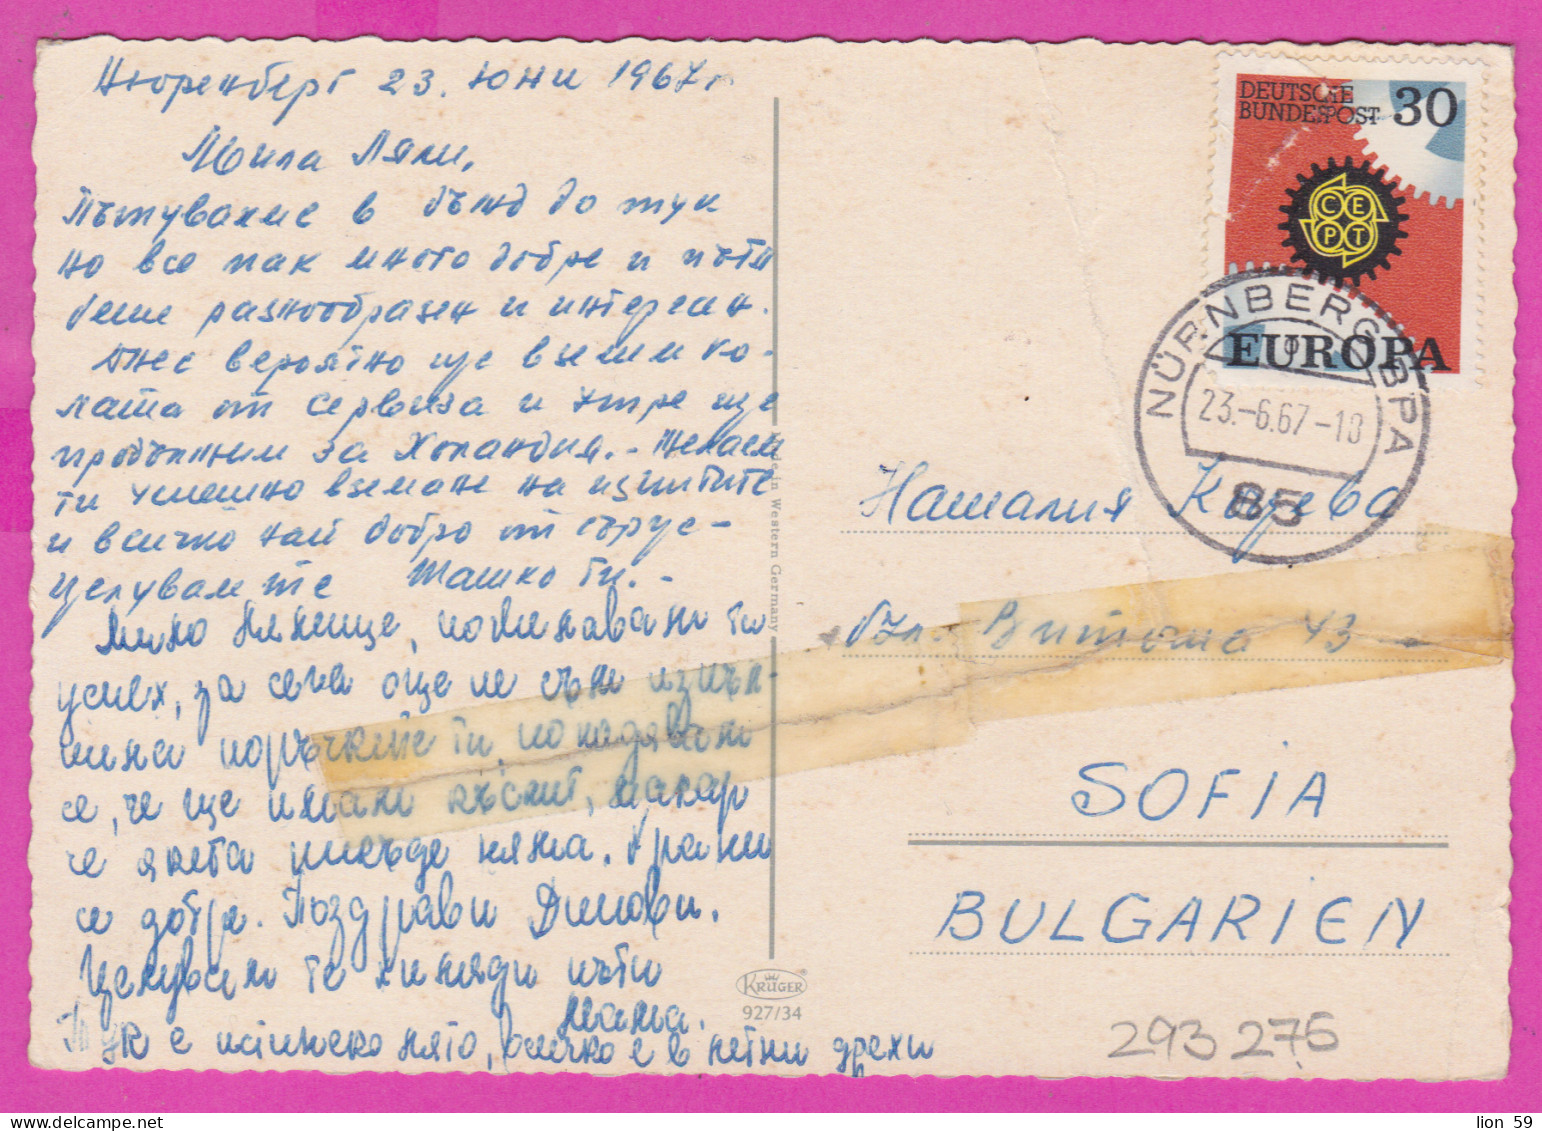 Нюренберг 23. юни 1967г.
Мила Ляли,
Пътувахме в дъжд до тук
но все пак много добре и пътя
беше разнообразен и интересен.
Днес вероятно ще вземем ко-
лата от сервиза и утре ще
продължим за Холандия. - Желаем
ти успешно вземане на изпитите
и всичко най добро от сърце -
Целувам те Ташко ти. -
Мило , пожелавам ти
успех, за сега още не съм изпъл-
нила поръчките ти, но надявам
се, че ще имам късмет, макар
че якета никъде няма. Храни
се добре. Поздрави Динови.
Целувам те хиляди пъти
мама.
Тук е истинско лято, всичко е в летни дрехи
Made in Western Germany
KRÜGER
927/34
DEUTSCHE
BUNDESPOST 30
CEPT
EUROPA
NÜRNBERG BPA
23.-6.67-18
85
Наталия
бул. Витоша 43
SOFIA
BULGARIEN
293 275
lion 59